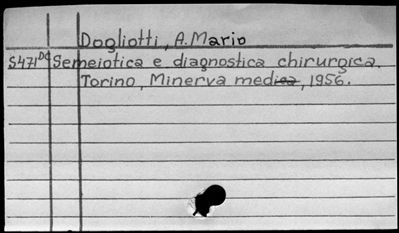 Dogliotti, A. Mario
S471Do Semeiotica e diagnostica chirurgica.
Torino, Minerva medica, 1956.